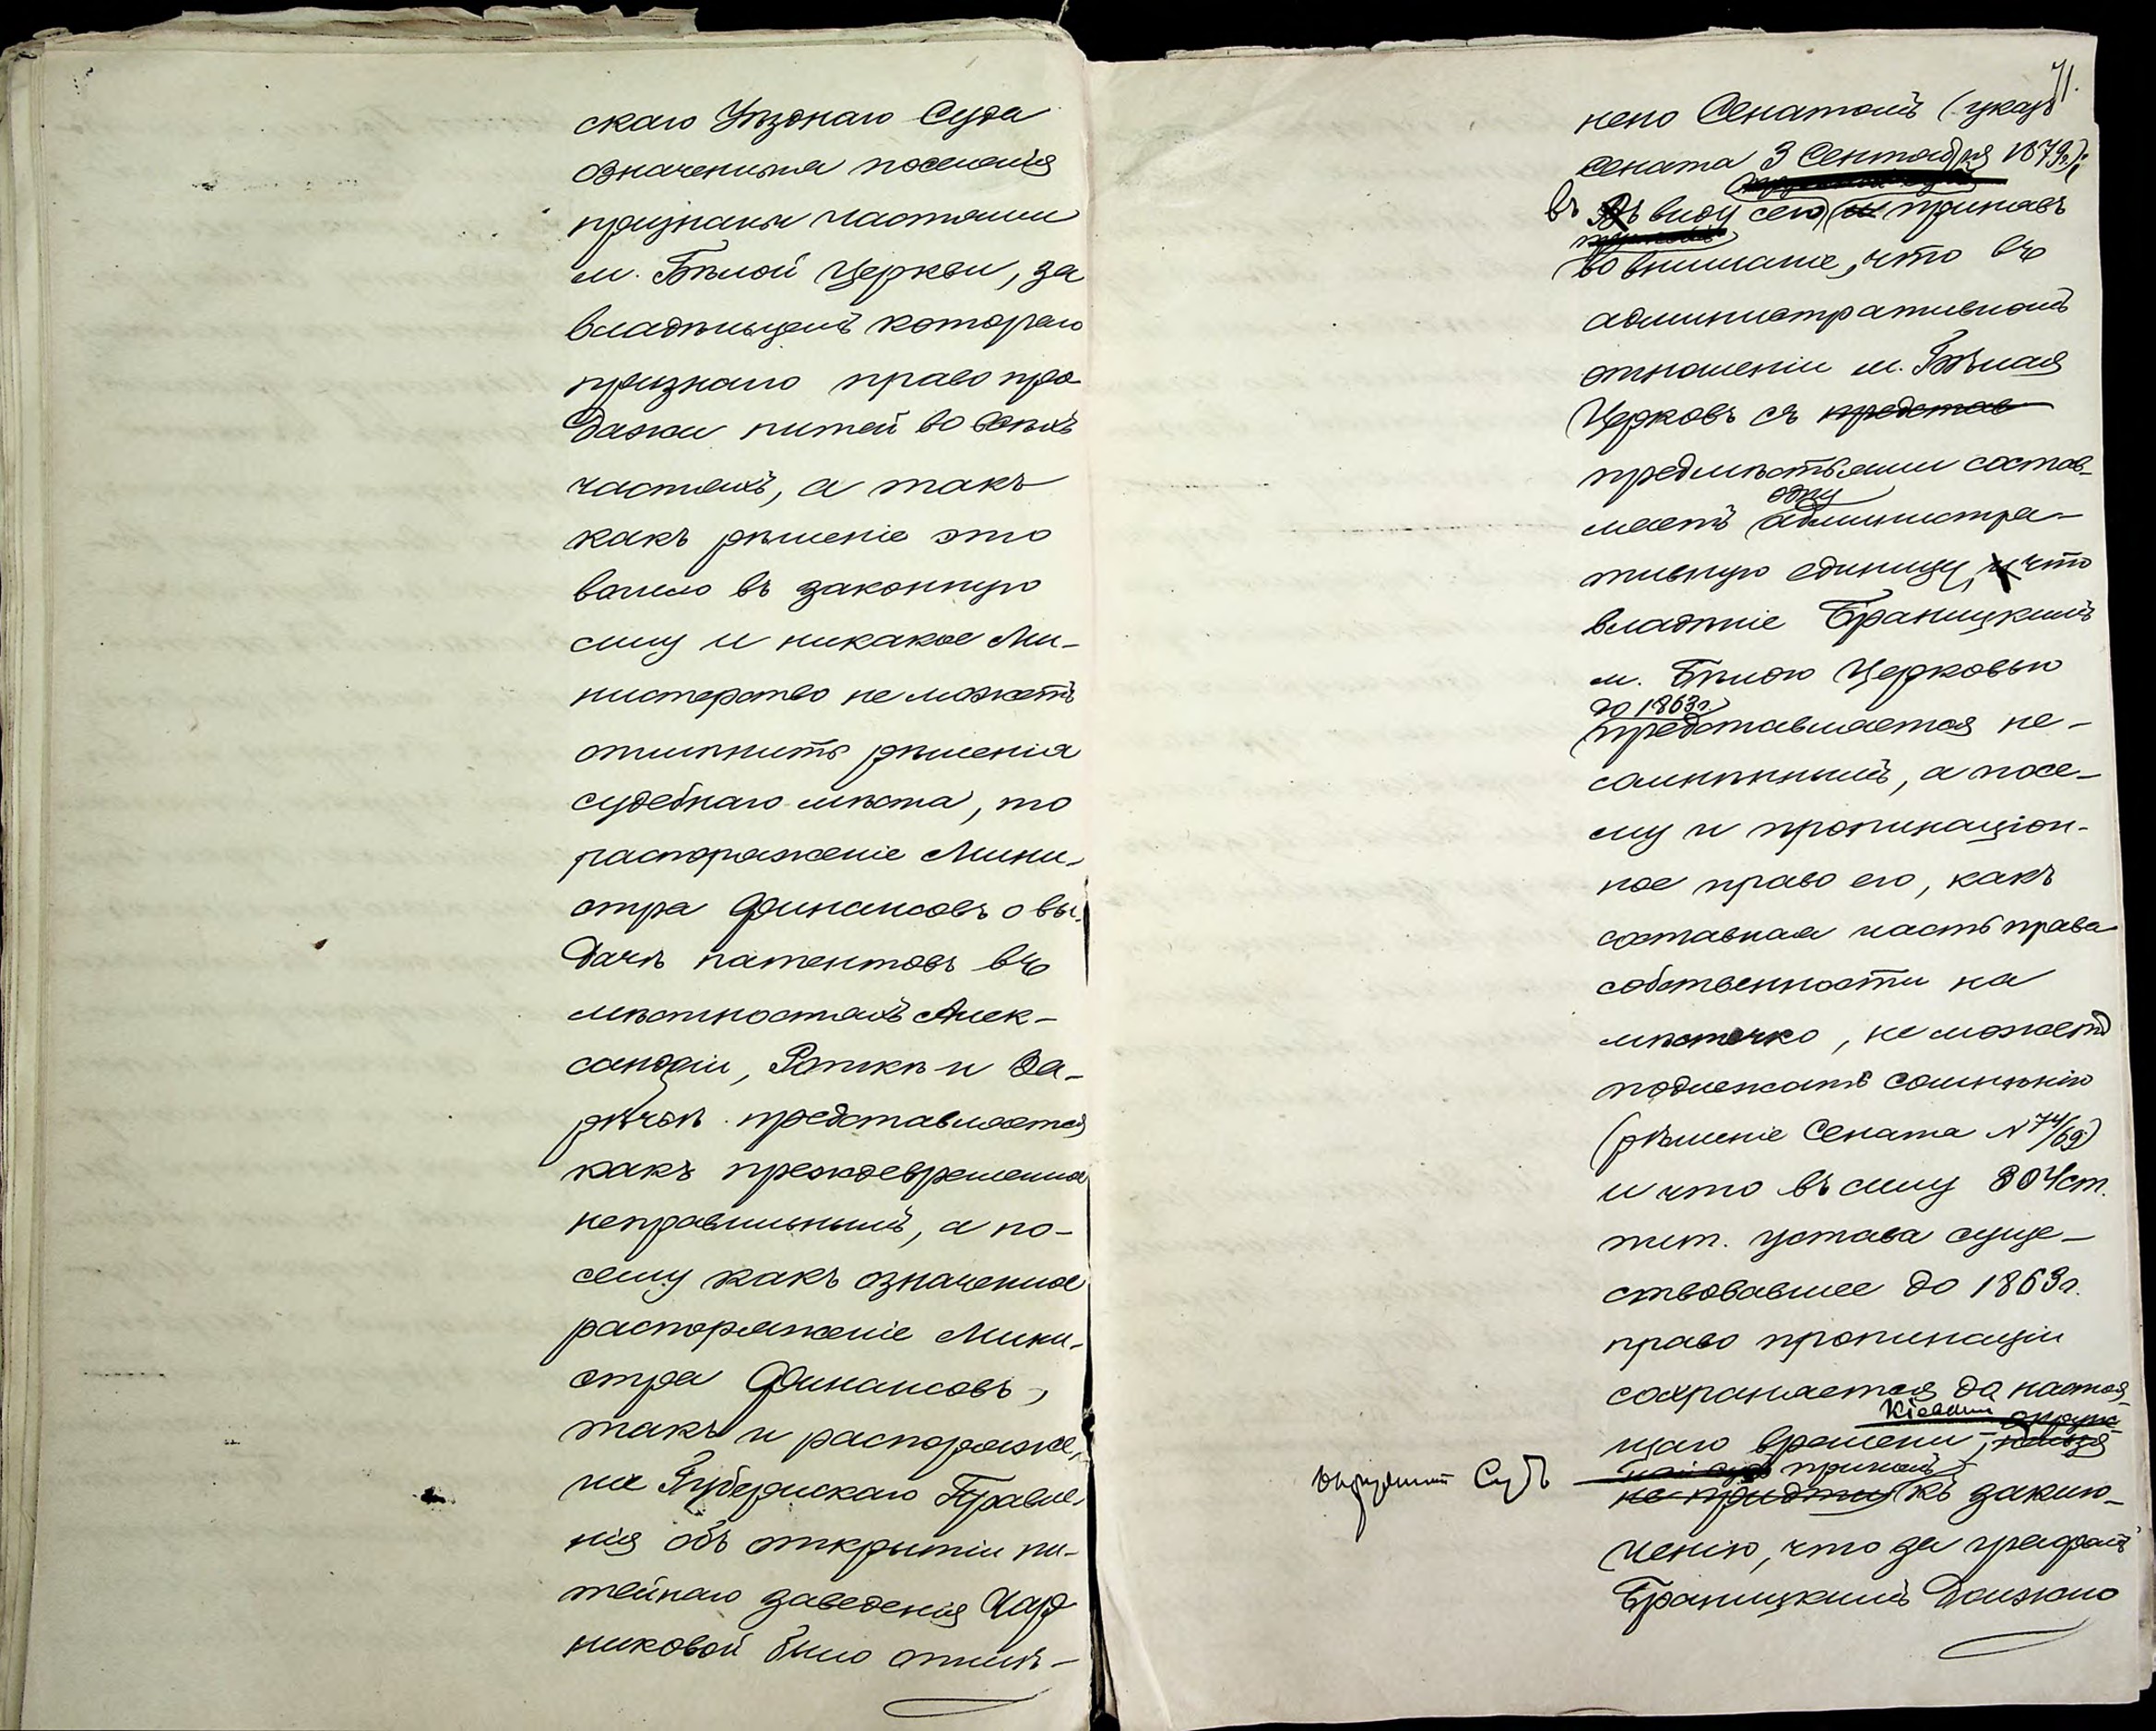 скаго Уѣзднаго Суда
означенныя поселенія
признаны частями
м. Бѣлой Церкви, за
владѣльцемъ котораго
признано право про-
дажи питей во всѣхъ
частяхъ, а такъ
какъ рѣшеніе это
вошло въ законную
силу и никакое Ми-
нистерство не можетъ
отмѣнить рѣшенія
судебнаго мѣста, то
распоряженіе Мини-
стра Финансовъ о вы-
дачѣ патентовъ въ
мѣстностяхъ Алек-
сандріи, Роткѣ и За-
рѣчьѣ представляется
какъ преждевременное
неправильнымъ, а по-
сему какъ означенное
распоряженіе Мини-
стра Финансовъ,
такъ и распоряже-
ніе Губернскаго Правле-
нія объ открытіи пи-
тейнаго заведенія
никовой было отмѣ-
71.
нено Сенатомъ (указъ
Сената 3 Сентября 1879г.);
въ виду сего принявъ
во вниманіе, что въ
административномъ
отношеніи м. Бѣлая
Церковь съ представ
предмѣстьями состав-
ляетъ одну администра-
тивную единицу, что
владѣніе Браницкимъ
м. Бѣлою Церковью
до 1863г.
представляется не-
сомнѣннымъ, а посе-
му и пропинаціон-
ное право его, какъ
составная часть права
собственности на
мѣстечко, не можетъ
подлежать сомнѣнію
(рѣшеніе Сената № 74/69)
и что въ силу 304 ст.
пит. устава суще-
ствовавшее до 1863г.
право пропинаціи
сохраняется до настоя-
Кіевскій окруж
щаго времени, нельзя
Окружный Судъ
ный судъ пришелъ
не придти къ заклю-
ченію, что за графомъ
Браницкимъ должно